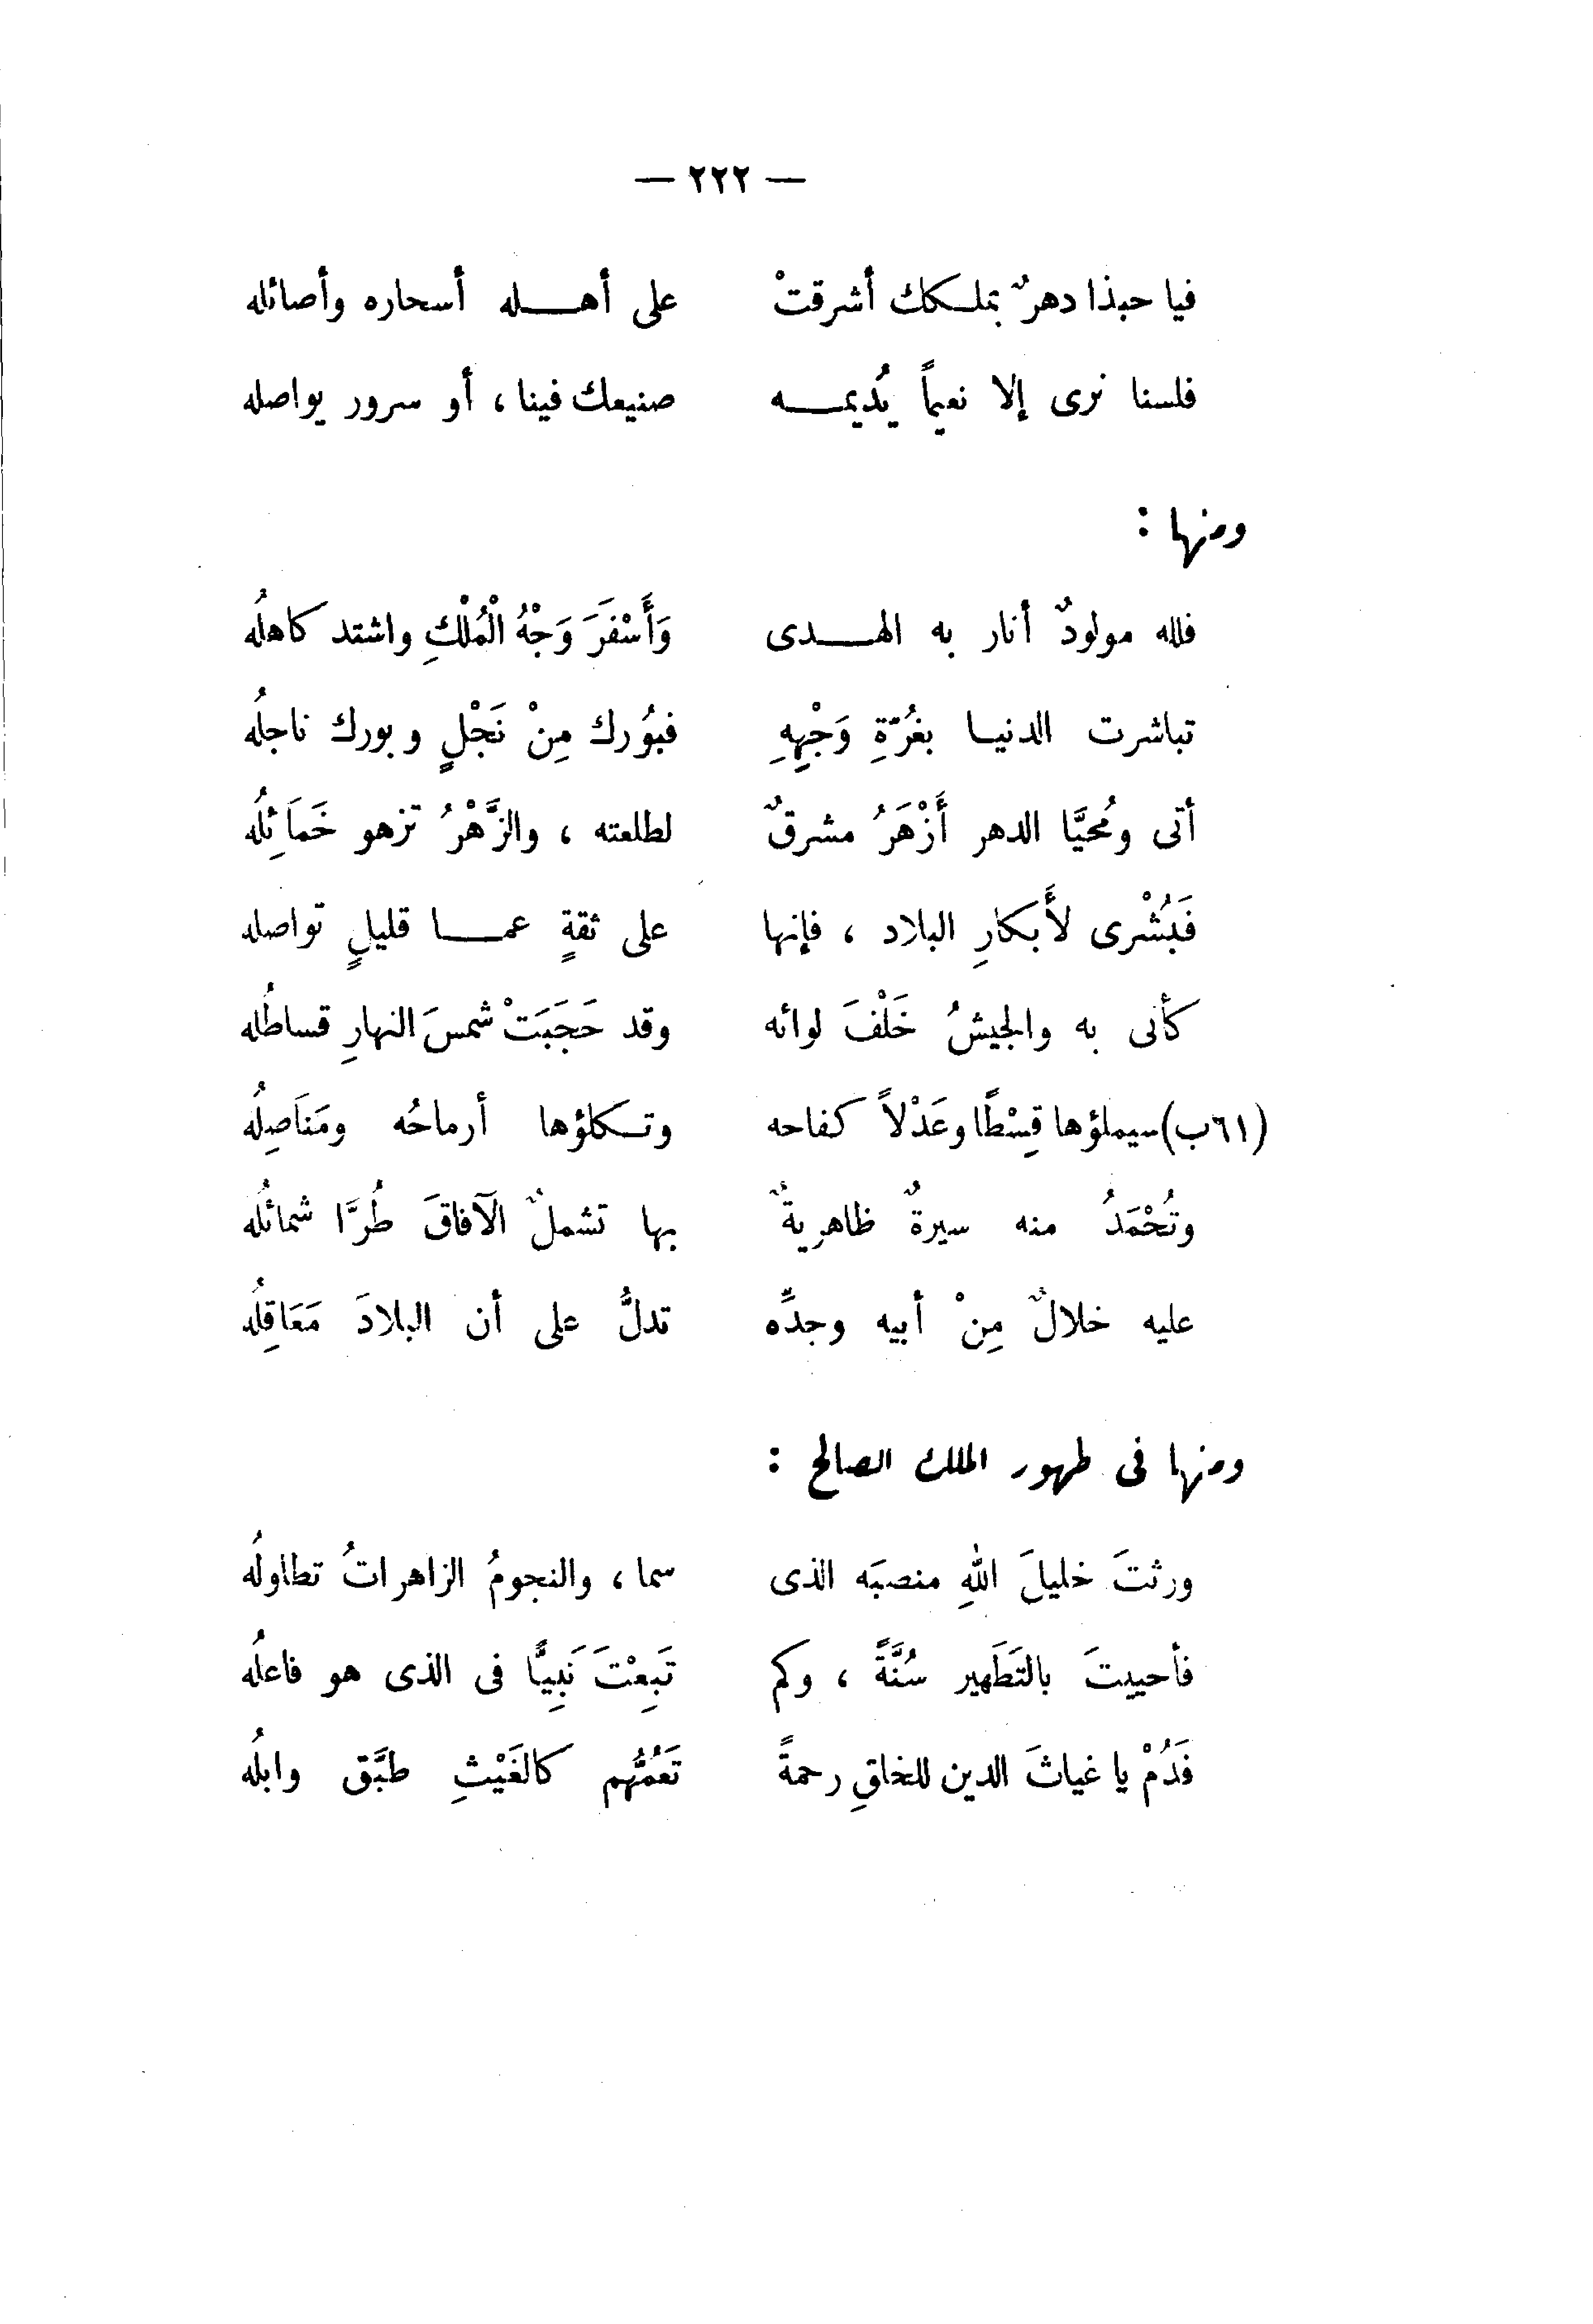 — ٢٢٢ —
فيا حبذا دهرٌ بملكك أشرقتْ على أهله أسحاره وأصائله
فلسنا نرى إلا نعيماً يُديمه صنيعك فينا ، أو سرور يواصله
ومنها :
فلله مولودٌ أنار به الهدى وَأَسْفَرَ وَجْهُ الْمُلْكِ واشتد كاهلُه
تباشرت الدنيا بغُرّةِ وَجْهِهِ فبُورك مِنْ نَجْلٍ وبورك ناجلُه
أتى ومُحيَّا الدهر أَزْهَرُ مشرقٌ لطلعته ، والزَّهْرُ تزهو خَمَائِلُه
فَبُشْرى لأَبكارِ البلاد ، فإنها على ثقةٍ عما قليلٍ تواصله
كأنى به والجيشُ خَلْفَ لوائه وقد حَجَبَتْ شمسَ النهارِ قساطلُه
(٦١ب) سيملؤها قِسْطًا وعَدْلاً كفاحه وتكلؤها أرماحُه ومَنَاصِلُه
وتُحْمَدُ منه سيرةٌ ظاهريةٌ بها تشملٌ الآفاقَ طُرًّا شمائلُه
عليه خلالٌ مِنْ أبيه وجدِّه تدلُّ على أن البلادَ مَعَاقِلُه
ومنها فى طهور الملك الصالح :
ورثتَ خليلَ اللهِ منصبَه الذى سما ، والنجومُ الزاهراتُ تطاولُه
فأحييتَ بالتَطَهير سُنَّةً ، وكم تَبِعْتَ نَبِيًّا فى الذى هو فاعلُه
فَدُمْ يا غياثَ الدين للخلقِ رحمةً تَعُمُّهم كالغَيْثِ طبَّق وابلُه